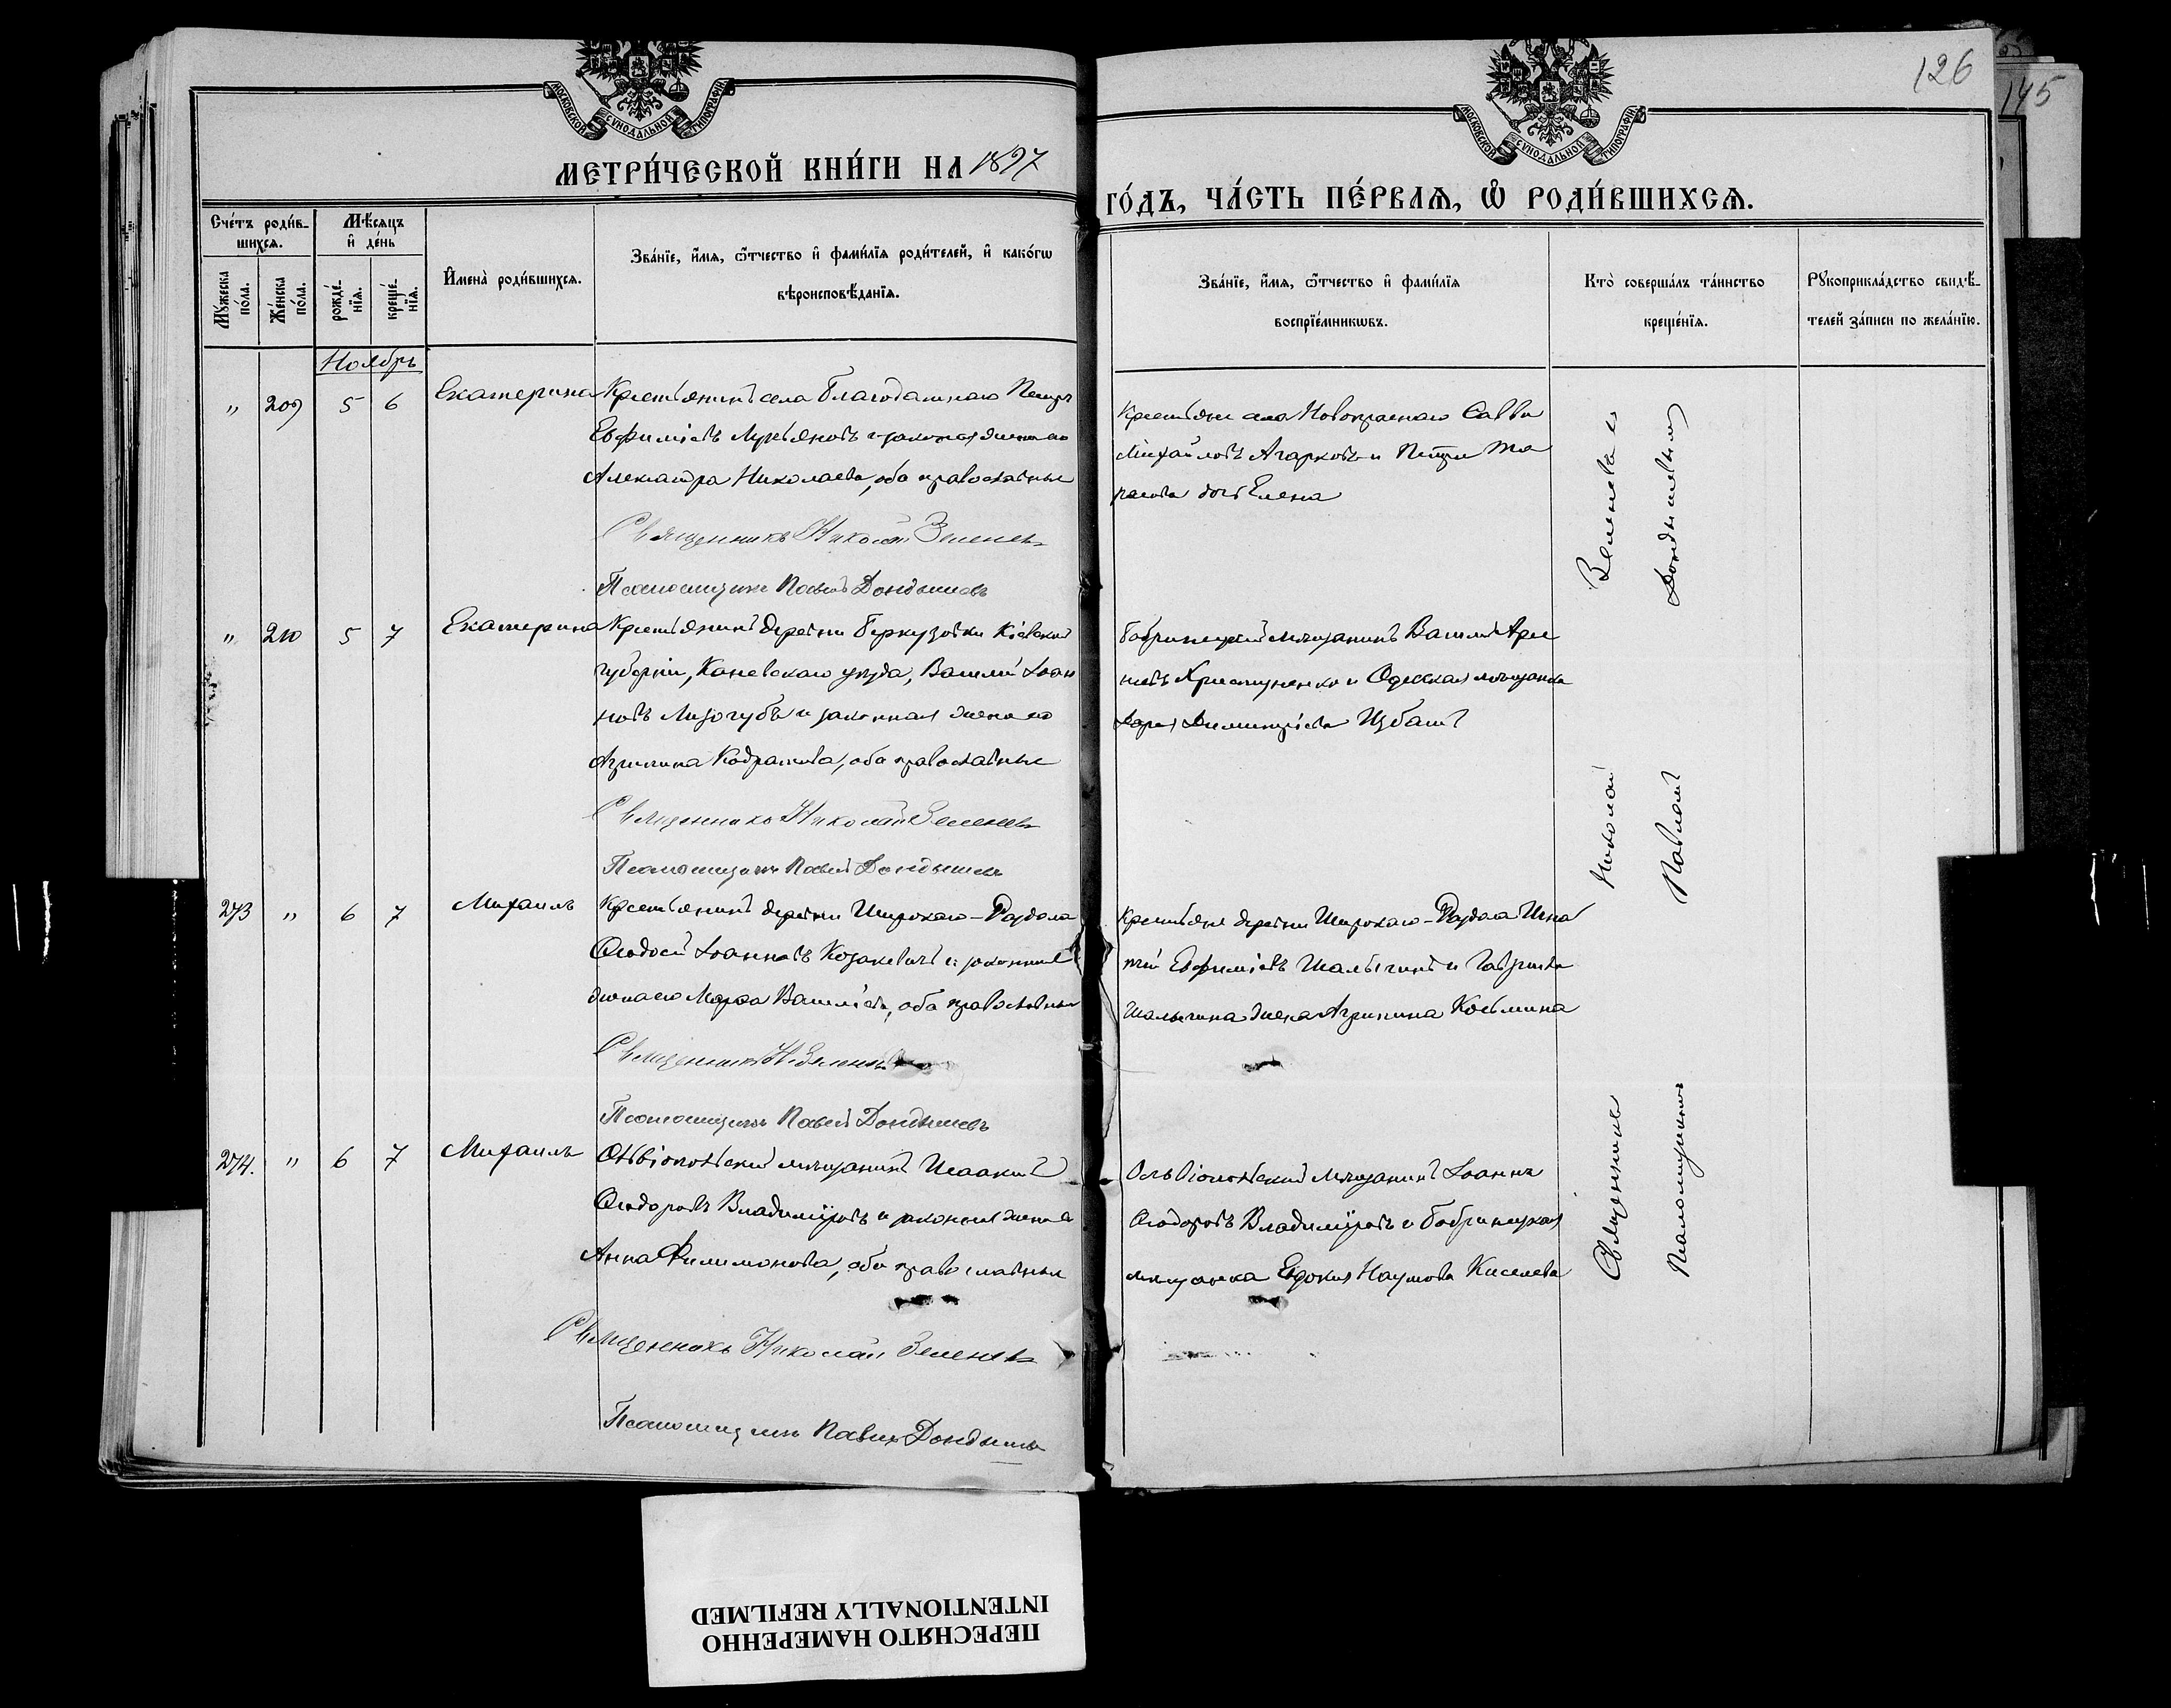 126
145
МОСКОВСКОЙ СѴНОДАЛЬНОЙ ТИПОГРАФІИ
МОСКОВСКОЙ СѴНОДАЛЬНОЙ ТИПОГРАФІИ
МЕТРИ́ЧЕСКОЙ КНИ́ГИ НА 1897
ГО́ДЪ, ЧА́СТЬ ПЕ́РВАѦ, Ѽ РОДИ́ВШИХСѦ.
Сче́тъ роди́в-
шихсѧ.
Мѣ́сѧцъ
и҆ де́нь
Мꙋ́жеска
по́ла.
Же́нска
по́ла.
рожде́-
нїѧ.
креще́-
нїѧ.
И҆мена̀ роди́вшихсѧ.
Зва́нїе, и҆́мѧ, ѻ҆́тчество и҆ фами́лїѧ роди́телей, и҆ како́гѡ
вѣроисповѣ́данїѧ.
Зва́нїе, и҆́мѧ, ѻ҆́тчество и҆ фами́лїѧ
воспрїе́мникѡвъ.
Кто̀ соверша́лъ та́инство
креще́нїѧ.
Рꙋкоприкла́дство свидѣ́-
телей за́писи по жела́нїю.
Ноябрь
" 209 5 6 Екатерина
Крестьянинъ села Благодатнаго Петръ
Евфиміевъ Лукьяновъ и законная жена его
Александра Николаева, оба православные
Священникъ Николай Зеленевъ
Псаломщикъ Павелъ Дондышевъ
Крестьяне села Новокраснаго Савва
Михайловъ Агарковъ и Петра Та
расова дочь Елена
" 210 5 7 Екатерина
Крестьянинъ деревни Беркузовки Кіевской
губерніи, Каневскаго уѣзда, Василій Іоан
новъ Лизогубъ и законная жена его
Агрипина Кодратова, оба православные
Священникъ Николай Зеленевъ
Псаломщикъ Павелъ Дондышевъ
Бобринецкій мѣщанинъ Василій
и Одесская мѣщанка
Дарья Димитріева
273 " 6 7 Михаилъ
Крестьянинъ деревни Широкаго-Раздола
Ѳеодосій Іоанновъ Козакевичъ и законная
жена его Марѳа Васильева, оба православные
Священникъ Н. Зеленевъ
Псаломщикъ Павелъ Дондышевъ
Крестьяне деревни Широкаго-Раздола Игна
тій Евфиміевъ Шалыгинъ и Гавриила
Шалыгина жена Агрипина Косьмина
274. " 6 7 Михаилъ
Ольвіопольскій мѣщанинъ Исаакій
Ѳеодоровъ Владиміровъ и законная жена его
Анна Филимонова, оба православные
Священникъ Николай Зеленевъ
Псаломщикъ Павелъ Дондышевъ
Ольвіопольскій мѣщанинъ Іоаннъ
Ѳеодоровъ Владиміровъ и Бобринецкая
мѣщанка Евдокія Наумова Киселева
Священникъ Николай Зеленевъ съ
Псаломщикомъ Павломъ Дондышевымъ
ПЕРЕСНЯТО НАМЕРЕННО
INTENTIONALLY REFILMED